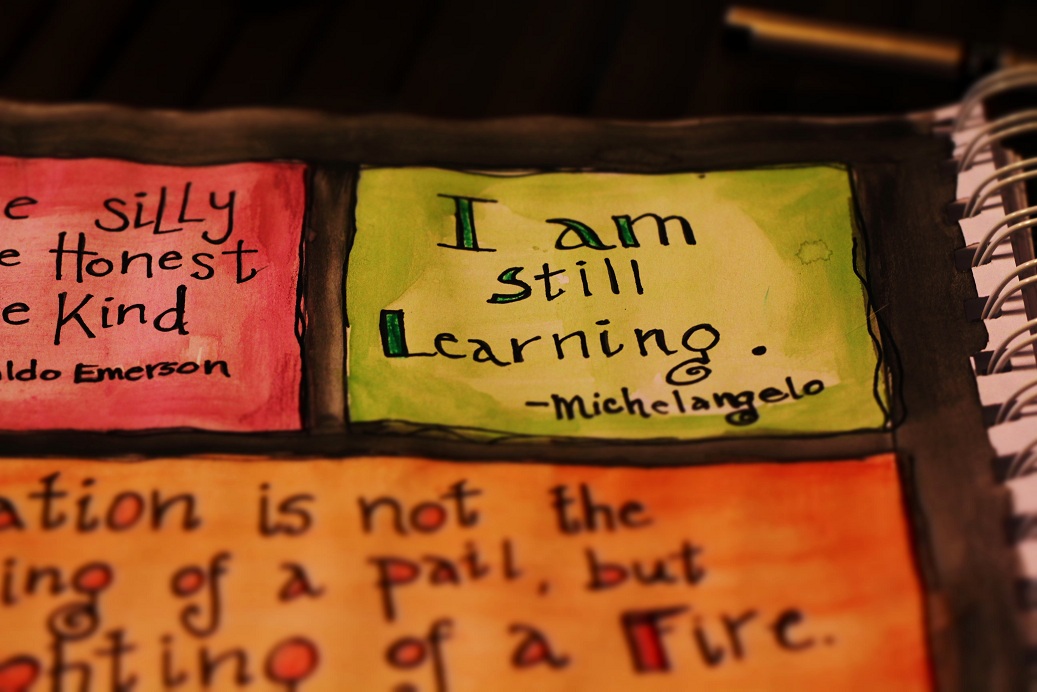 e siLLy
e Honest
e Kind
ldo Emerson
I am
still
Learning.
-Michelangelo
ation is not the
ing of a pail, but
ghting of a Fire.